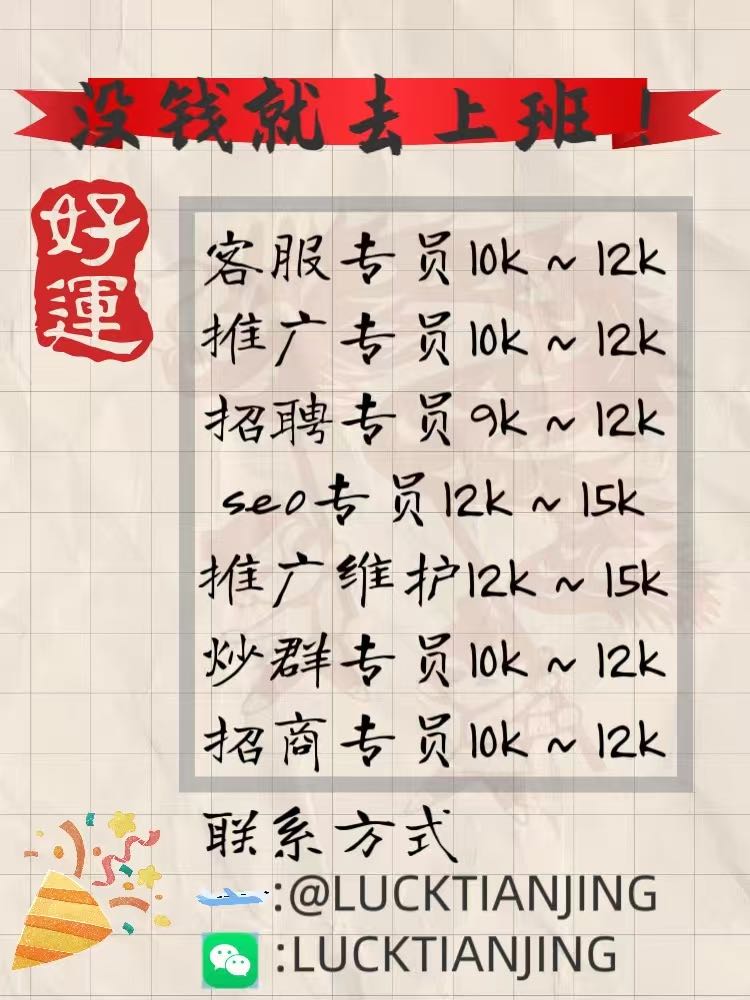 没钱就去上班！
好運
客服专员10k～12k
推广专员10k～12k
招聘专员9k～12k
seo专员12k～15k
推广维护12k～15k
炒群专员10k～12k
招商专员10k～12k
联系方式
:@LUCKTIANJING
:LUCKTIANJING